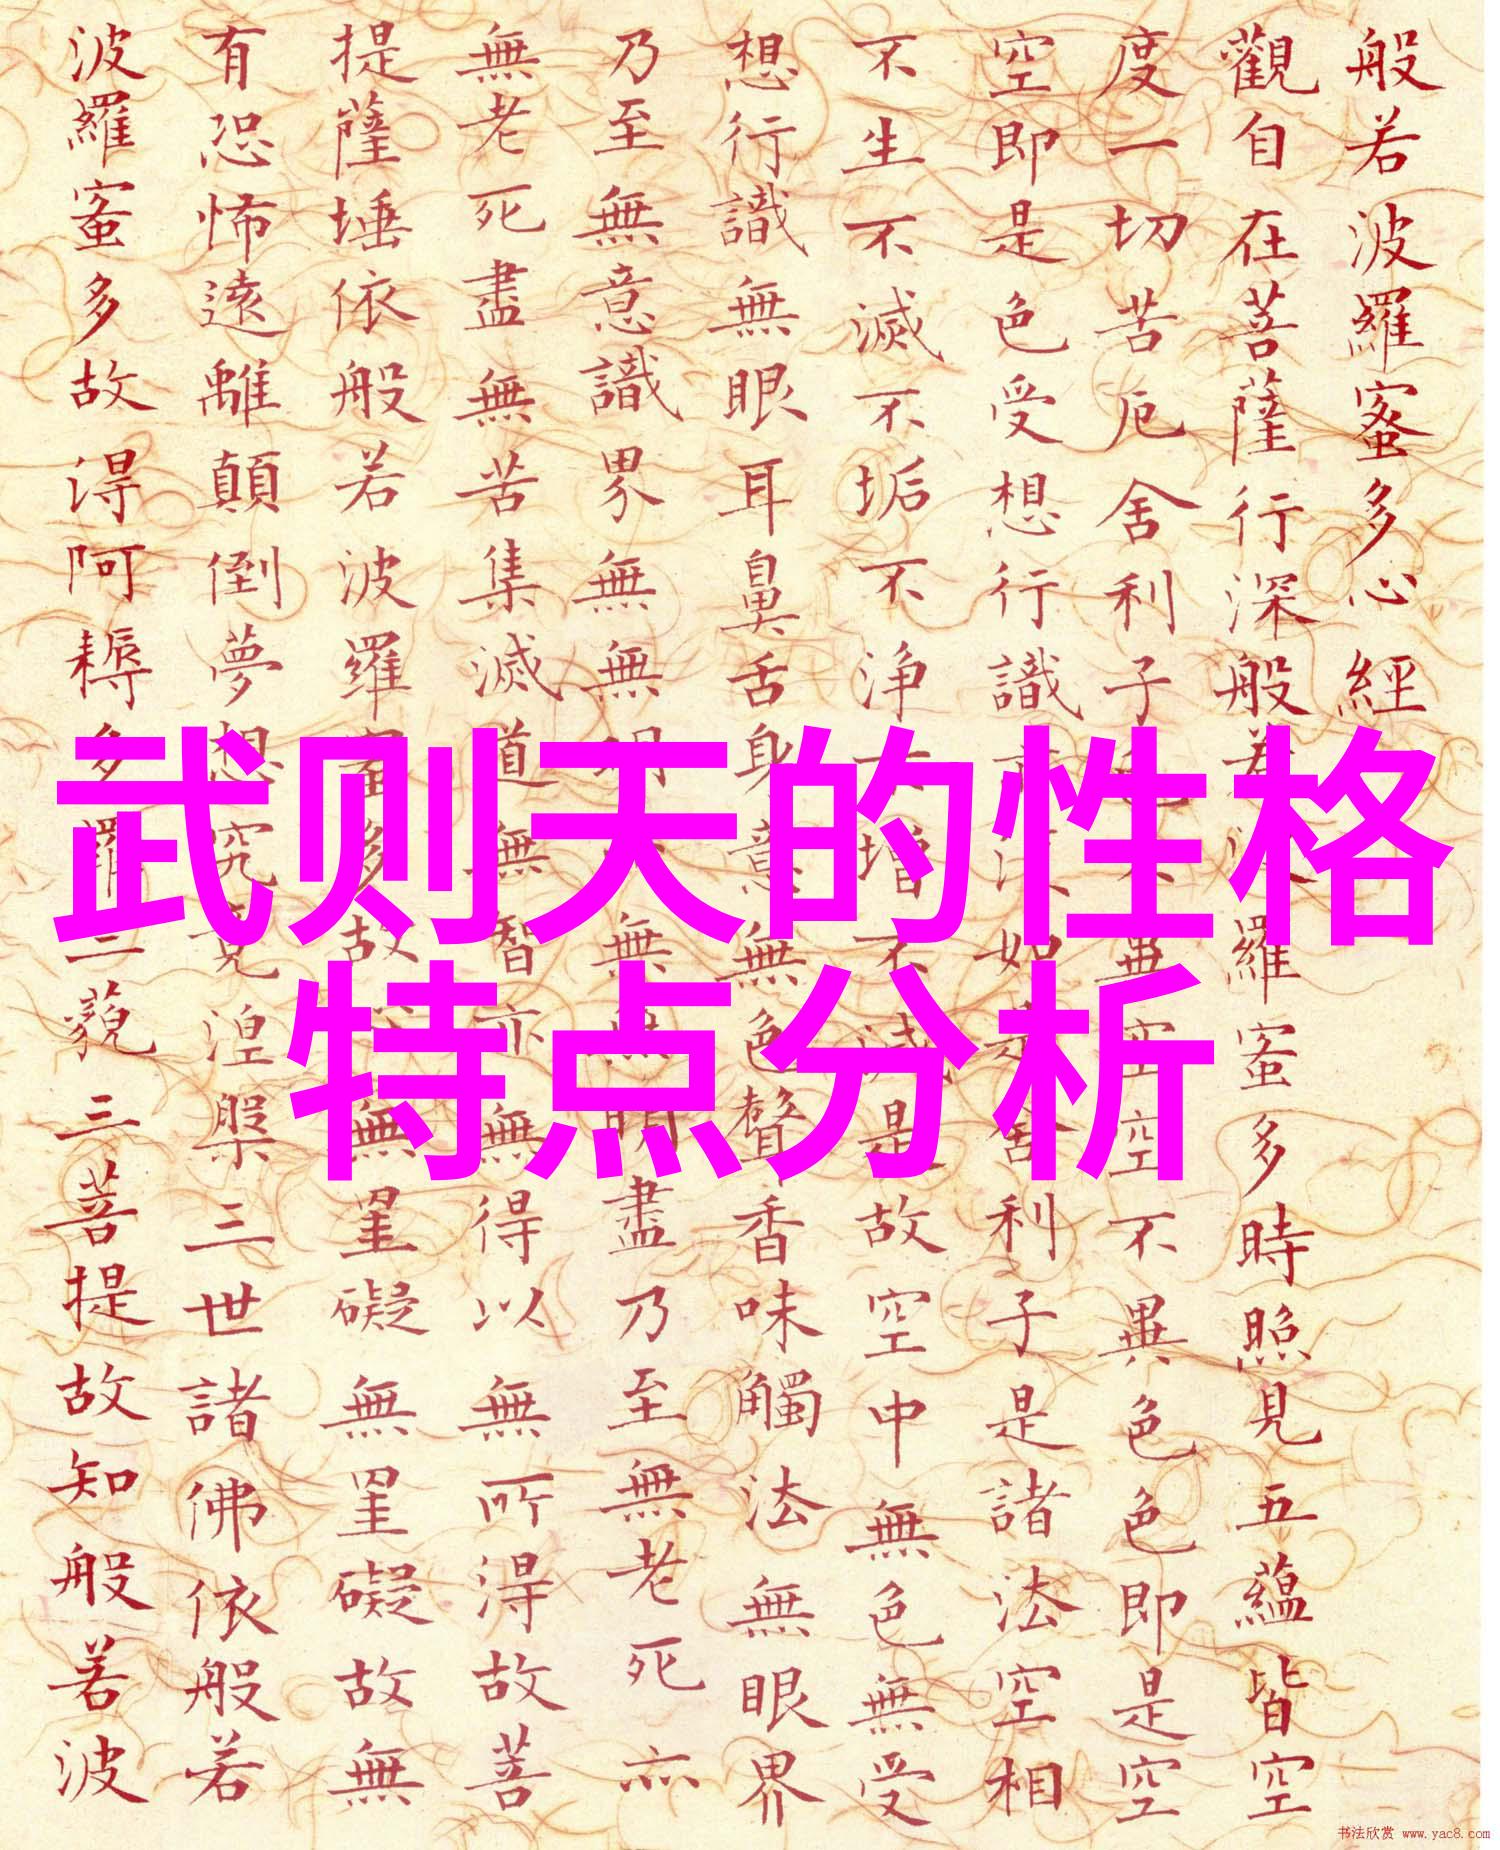 武则天的性格
特点分析
般若波羅蜜多心經
觀自在菩薩行深般若波羅蜜多時照見五蘊皆空
度一切苦厄舍利子色不異空空不異色色即是空
空即是色受想行識如是舍利子是諸法空相
不生不滅不垢不淨不增不減是故空中無色無受
想行識無眼耳鼻舌身意無色聲香味觸法無眼界
乃至無意識界無無明無無明盡乃至無老死亦
無老死盡無苦集滅道無智亦無得以無所得故菩
提薩埵依般若波羅蜜多故無罣礙無罣礙故無
有恐怖遠離顛倒夢想究竟涅槃三世諸佛依般若
波羅蜜多故得阿耨多羅三藐三菩提故知般若波
书法欣赏 www.yac8.com